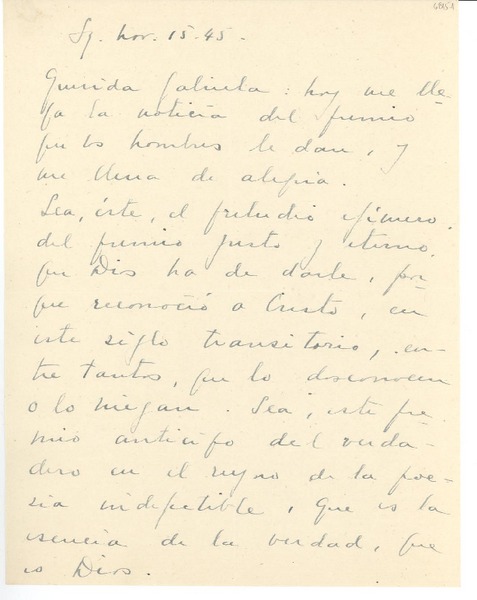 Sg. nov. 15-45.
Querida Gabriela: hoy me lle-
ga la noticia del premio
que los hombres le dan, y
me llena de alegría.
Sea, éste, el preludio efímero,
del premio justo y eterno,
que Dios ha de darle, por-
que reconoció a Cristo, en
este siglo transitorio, en-
tre tantos, que lo desconocen
o lo niegan. Sea, este pre-
mio anticipo del verda-
dero en el reyno de la poe-
sía indefectible, que es la
esencia de la verdad, que
es Dios.